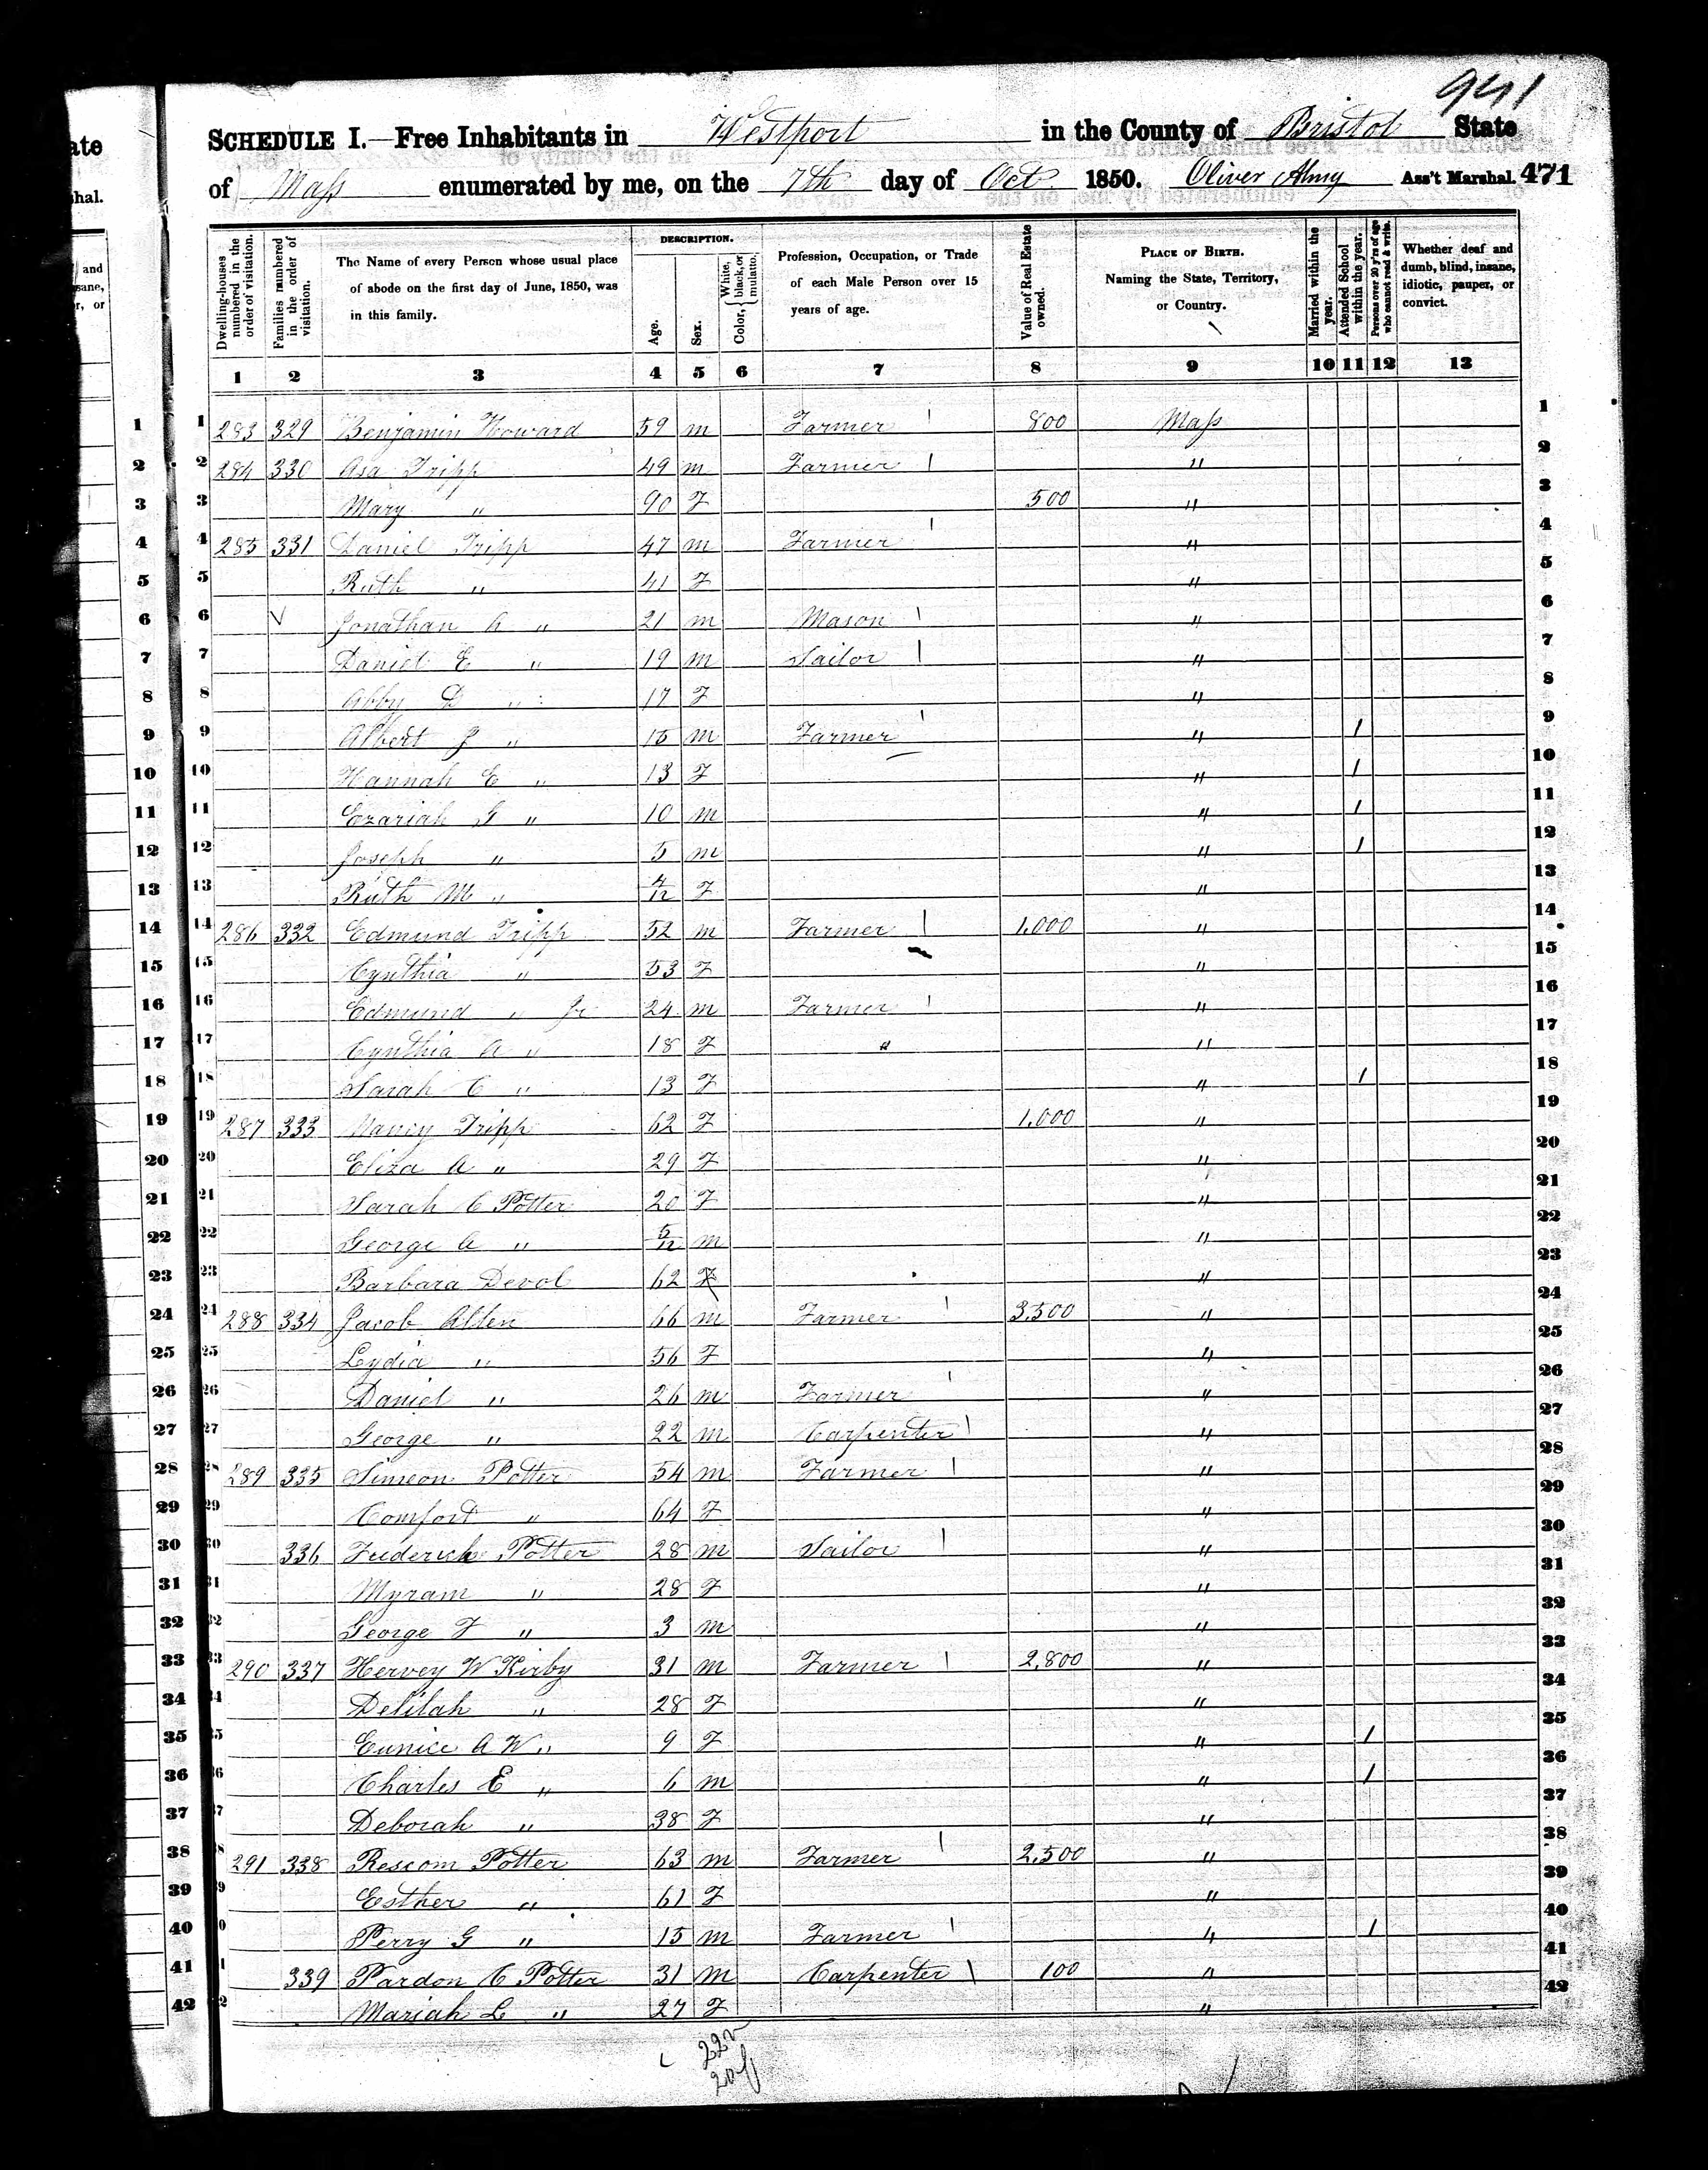 941
SCHEDULE I.—Free Inhabitants in Westport in the County of Bristol State
of Mass enumerated by me, on the 7th day of Oct 1850. Oliver Almy Ass't Marshal. 471
Dwelling-houses numbered in the order of visitation.
Families numbered in the order of visitation.
The Name of every Person whose usual place of abode on the first day of June, 1850, was in this family.
DESCRIPTION.
Age.
Sex.
Color, { White, black, or mulatto.
Profession, Occupation, or Trade of each Male Person over 15 years of age.
Value of Real Estate owned.
PLACE OF BIRTH. Naming the State, Territory, or Country.
Married within the year.
Attended School within the year.
Persons over 20 y'rs of age who cannot read & write.
Whether deaf and dumb, blind, insane, idiotic, pauper, or convict.
1 2 3 4 5 6 7 8 9 10 11 12 13
1 283 329 Benjamin Howard 59 m Farmer 800 Mass 1
2 284 330 Asa Tripp 49 m Farmer " 2
3 Mary " 90 F 500 " 3
4 285 331 Daniel Tripp 47 m Farmer " 4
5 Ruth " 41 F " 5
6 Jonathan A " 21 m Mason " 6
7 Daniel E " 19 m Sailor " 7
8 Abby D " 17 F " 8
9 Albert J " 15 m Farmer " 1 9
10 Hannah E " 13 F " 1 10
11 Ezariah G " 10 m " 1 11
12 Joseph " 5 m " 1 12
13 Ruth M " 4/12 F " 13
14 286 332 Edmund Tripp 52 m Farmer 1,000 " 14
15 Cynthia " 53 F " 15
16 Edmund " Jr 24 m Farmer " 16
17 Cynthia A " 18 F " 17
18 Sarah C " 13 F " 1 18
19 287 333 Nancy Tripp 62 F 1,000 " 19
20 Eliza A " 29 F " 20
21 Sarah C Potter 20 F " 21
22 George A " 5/12 m " 22
23 Barbara Devol 62 F " 23
24 288 334 Jacob Allen 66 m Farmer 3,500 " 24
25 Lydia " 56 F " 25
26 Daniel " 26 m Farmer " 26
27 George " 22 m Carpenter " 27
28 289 335 Simeon Potter 54 m Farmer " 28
29 Comfort " 64 F " 29
30 336 Frederick Potter 28 m Sailor " 30
31 Myram " 28 F " 31
32 George F " 3 m " 32
33 290 337 Hervey W Kirby 31 m Farmer 2,800 " 33
34 Delilah " 28 F " 34
35 Eunice A W " 9 F " 1 35
36 Charles E " 6 m " 1 36
37 Deborah " 38 F " 37
38 291 338 Rescom Potter 63 m Farmer 2,500 " 38
39 Esther " 61 F " 39
40 Perry G " 15 m Farmer " 1 40
41 339 Pardon C Potter 31 m Carpenter 100 " 41
42 Mariah L " 27 F " 42